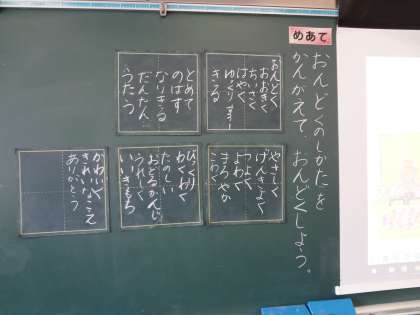 めあて
おんどくのしかたを
かんがえて、おんどくしよう。
おんどく
おおきく
ちいさく
はやく
ゆっくり
きる
とめて
のばす
なりきる
だんだん
うたう
やさしく
げんきよく
つよく
よわく
まろやか
こわく
びっくり
わくわく
たのしい
おどるかんじ
うれしく
いいきもち
かわいく
きれいなこえ
ありがとう